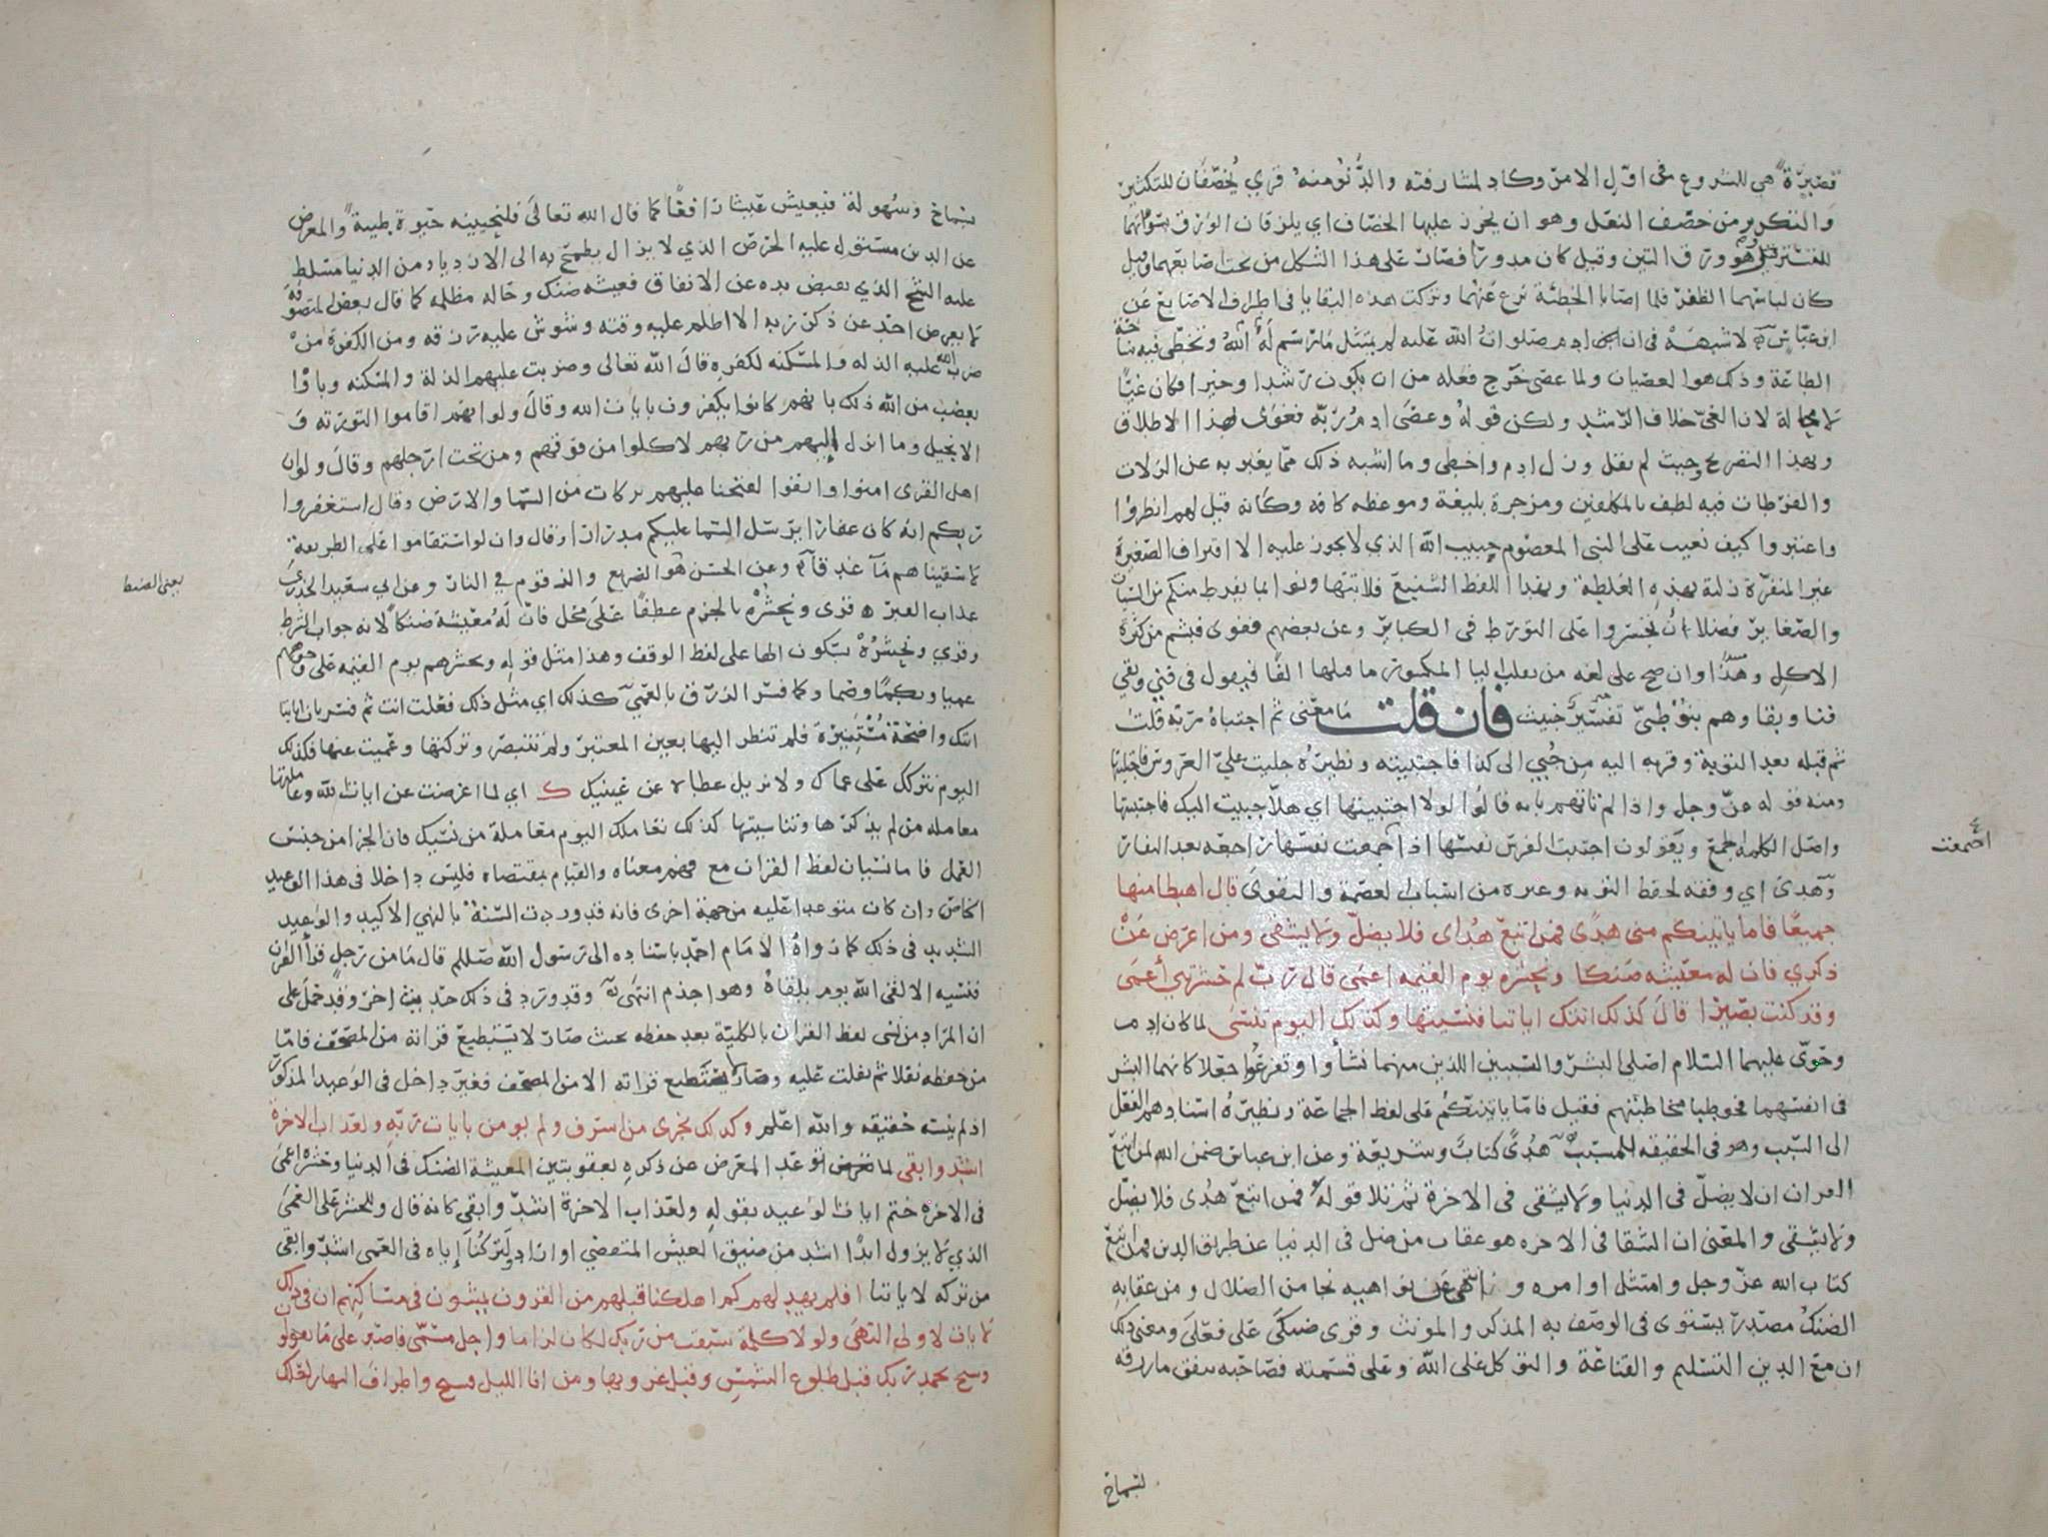 قصيرة هي للشروع في اول الامر وكاد لمشارفته والدنو منه قري يخصفان للتكثير
والتكرير من خصف النعل وهو ان يخرز عليها الخصاف اي يلزقان الورق بسوأتهما
للتستر قيل هو ورق التين وقيل كان مدورا فصار على هذا الشكل من تحت اصابعهما وقيل
كان لباسهما الظفر فلما اصابا الخطيئة نزع عنهما وتركت هذه البقايا في اطراف الاصابع عن
ابن عباس لا شبهة في ان ادم صلوات الله عليه لم يتمثل ما رسم له الله وتخطى فيه ساحة
الطاعة وذلك هو العصيان ولما عصى خرج فعله من ان يكون رشدا وخيرا فكان غيا
لا محالة لان الغي خلاف الرشد ولكن قوله وعصى ادم ربه فغوى بهذا الاطلاق
وبهذا التصريح وحيث لم يقل وزل ادم واخطى وما اشبه ذلك مما يعبر به عن الزلات
والفرطات فيه لطف بالمكلفين ومزجرة بليغة وموعظه كافه وكانه قيل لهم انظروا
واعتبروا كيف نعيت على النبي المعصوم حبيب الله الذي لا يجوز عليه الا اقتراف الصغيرة
غير المنفرة زلته بهذه الغلظة وبهذا اللفظ الشنيع فلا تتهاونوا بما يفرط منكم من السيات
والصغاير فضلا ان تجسروا على التورط في الكباير وعن بعضهم فغوى فبشم من كثرة
الاكل وهذا وان صح على لغه من يقلب اليا المكسور ما قبلها الفا فيقول في فني وبقي
فنا وبقا وهم بنو طيئ تفسير خبيث فان قلت ما معنى ثم اجتباه ربه قلت
ثم قبله بعد التوبة وقربه اليه من جبي الي كذا فاجتبيته ونظيره جليت علي العروس فاجتليتها
ومنه قوله عز وجل واذا لم تاتهم بايه قالوا لولا اجتبيتها اي هلا جبيت اليك فاجتبيتها
واصل الكلمه الجمع ويقولون اجتبت الفرس نفسها اذا اجمعت نفسها راجعه بعد النفار
وهدى اي وفقه لحفظ التوبه وغيره من اسباب العصمة والتقوى قال اهبطا منها
جميعا فاما ياتينكم مني هدى فمن اتبع هداى فلا يضل ولا يشقى ومن اعرض عن
ذكري فان له معيشه ضنكا ونحشره يوم القيمه اعمى قال رب لم حشرتني أعمى
وقد كنت بصيرا قال كذلك اتتك اياتنا فنسيتها وكذلك اليوم تنسى لما كان ادم
وحوى عليهما السلام اصلي البشر والسببين اللذين منهما نشأوا وتفرعوا جعلا كانهما البشر
في انفسهما فخوطبا مخاطبتهم فقيل فاما ياتينكم على لفظ الجماعة ونظيره اسنادهم الفعل
الى السبب وهو في الحقيقه للمسبب هدى كتاب وشريعة وعن ابن عباس ضمن الله لمن اتبع
القران ان لا يضل في الدنيا ولا يشقى في الاخرة ثم تلا قوله فمن اتبع هدى فلا يضل
ولا يشقى والمعنى ان الشقا في الاخره هو عقاب من ضل في الدنيا عن طريق الدين فمن اتبع
كتاب الله عز وجل وامتثل اوامره وانتهى عن نواهيه نجا من الضلال ومن عقابه
الضنك مصدر يستوى في الوصف به المذكر والمونث وقرى ضنكى على فعلى ومعنى ذلك
ان مع الدين التسليم والقناعة والتوكل على الله وعلى قسمته فصاحبه ينفق ما رزقه
اجمعت
لبسماح
بسماح وسهولة فيعيش عيشا رافغا كما قال الله تعالى فلنحيينه حيوة طيبة والمعرض
عن الدين مستول عليه الحرص الذي لا يزال يطمح به الى الازدياد من الدنيا مسلط
عليه الشح الذي يقبض يده عن الانفاق فعيشه ضنك وحاله مظلمه كما قال بعض المتصوفه
لا يعرض احد عن ذكر ربه الا اظلم عليه وقته وتشوش عليه رزقه ومن الكفرة من
ضرب الله عليه الذله والمسكنه لكفره قال الله تعالى وضربت عليهم الذلة والمسكنه وباؤا
بغضب من الله ذلك بانهم كانوا يكفرون بايات الله وقال ولو انهم اقاموا التورته و
الانجيل وما انزل اليهم من ربهم لاكلوا من فوقهم ومن تحت ارجلهم وقال ولو ان
اهل القرى امنوا واتقوا لفتحنا عليهم بركات من السما والارض وقال استغفروا
ربكم انه كان غفارا يرسل السما عليكم مدرارا وقال وان لو استقاموا على الطريقة
لاسقيناهم مآء غدقا وعن الحسن هو الضريع والزقوم في النار وعن ابي سعيد الخدري
عذاب القبر قرى ونحشره بالجزم عطفا على محل فان له معيشة ضنكا لانه جواب الشرط
وقري ونحشره بسكون الها على لفظ الوقف وهذا مثل قوله ونحشرهم يوم القيمه على وجوههم
عميا وبكما وصما وكما فسر الزرق بالعمي كذلك اي مثل ذلك فعلت انت ثم فسر بان اياتنا
اتتك واضحة مستنيرة فلم تنظر اليها بعين المعتبر ولم تتبصر وتركتها وعميت عنها فكذلك
اليوم نتركك على عماك ولا نزيل غطاه عن عينيك ك اي لما اعرضت عن ايات الله وعاملتها
معامله من لم يذكرها وتناسيتها كذلك نعاملك اليوم معاملة من نسيك فان الجزا من جنس
العمل فاما نسيان لفظ القران مع فهم معناه والقيام بمقتضاه فليس داخلا في هذا الوعيد
الخاص وان كان متوعدا عليه من جهة اخرى فانه قد وردت السنة بالنهي الاكيد والوعيد
الشديد في ذلك كما رواه الامام احمد باسناده الى رسول الله صللم قال ما من رجل قرأ القران
فنسيه الا لقى الله يوم يلقاه وهو اجذم انتهى وقد ورد في ذلك حديث اخر وقد حمل على
ان المراد من نسي لفظ القران بالكلية بعد حفظه بحيث صار لا يستطيع قراته من المصحف فاما
من حفظه نقلا ثم تفلت عليه وصار لا يستطيع قراته الا من المصحف فغير داخل في الوعيد المذكور
اذ لم ينسه حقيقه والله اعلم وكذلك نجزى من اسرف ولم يومن بايات ربه ولعذاب الاخرة
اشد وابقى لما توعد المعرض عن ذكره بعقوبتين المعيشة الضنك في الدنيا وحشره اعمى
في الاخره ختم ايات الوعيد بقوله ولعذاب الاخرة اشد وابقى كانه قال وللحشر على العمى
الذي لا يزول ابدا اشد من ضيق العيش المتقضي او اراد ولتركنا إياه في العمى اشد وابقى
من تركه لاياتنا افلم يهد لهم كم اهلكنا قبلهم من القرون يمشون في مساكنهم ان في ذلك
لايات لاولي النهى ولولا كلمة سبقت من ربك لكان لزاما واجل مسمى فاصبر على ما يقولون
وسبح بحمد ربك قبل طلوع الشمس وقبل غروبها ومن انا الليل فسبح واطراف النهار لعلك
يعنى الضنك